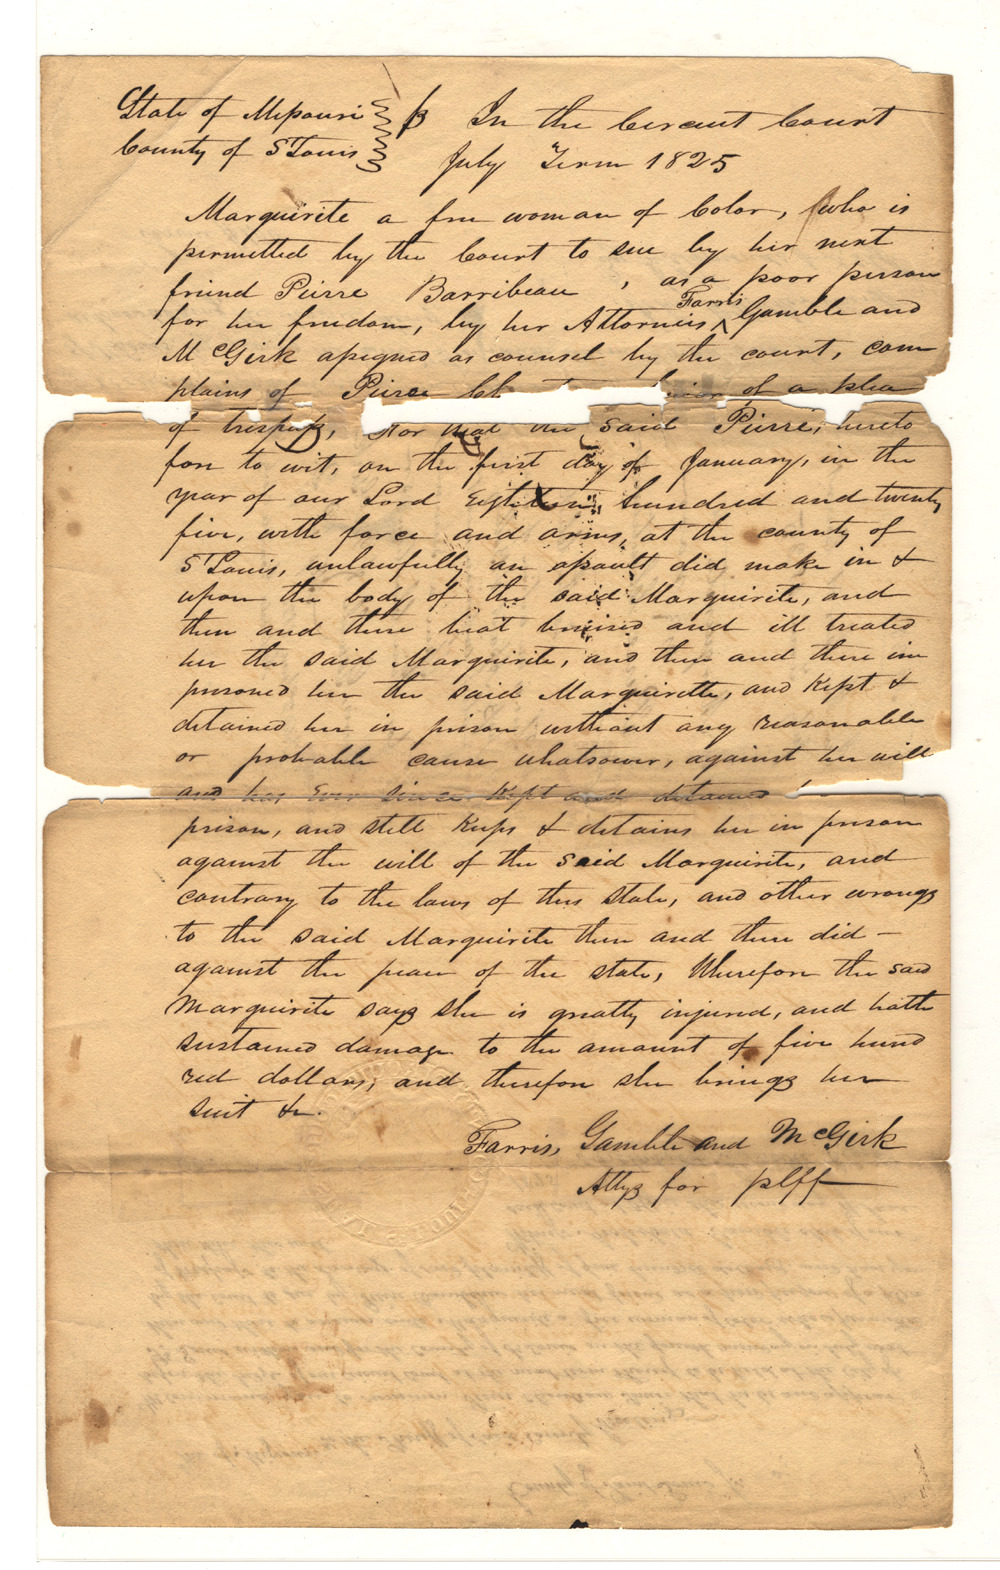 State of Missouri } ss In the Circuit Court
County of St Louis } July Term 1825
Marguirite a free woman of Color, who is
permitted by the Court to sue by her next
friend Pierre Barribeau, as a poor person
for her freedom, by her Attorneis Farris Gamble and
McGirk assigned as counsel by the court, com
plains of Pierre of a plea
of trespass, For that the said Pierre, hereto
fore to wit, on the first day of January, in the
year of our Lord Eighteen hundred and twenty
five, with force and arms, at the county of
St Louis, unlawfully an assault did make in &
upon the body of the said Marguirite, and
then and there beat bruised and ill treated
her the said Marguirite, and then and there im
prisoned her the said Marguirette, and kept &
detained her in prison without any reasonable
or probable cause whatsower, against her will
and has ever since kept and detained
prison, and still keeps & detains her in prison
against the will of the said Marguirite, and
contrary to the laws of this state, and other wrongs
to the said Marguirite then and there did –
against the peace of the state, Wherefore the said
Marguirite says she is greatly injured, and hath
sustained damage to the amount of five hund
red dollars, and therefore she brings her
suit &c.
Farris, Gamble and McGirk
Attys for plff